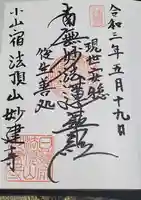 令和三年五月十九日
現世安穏
南無妙法蓮華経
後生善処
小山宿 法頂山 妙建寺